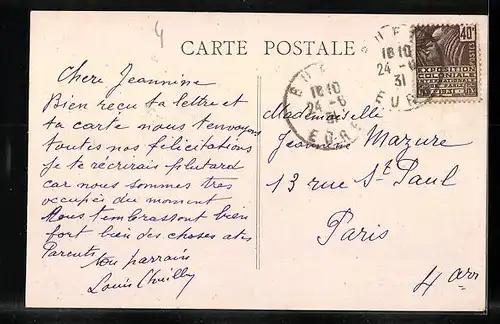 4
CARTE POSTALE
Chere Jeannine
Bien reçu ta lettre et
ta carte nous t'envoyons
toutes nos félicitations
je te récrirais plutard
car nous sommes tres
occupés du moment
Nous t'embrassont bien
fort bien des choses a tes
Parents
ton parrain
Louis
18 10
24 - 6
31
EURE
18 10
24 - 6
31
EURE
40c
POSTES
EXPOSITION
COLONIALE
INTERNATIONALE
PARIS 1931
Mademoiselle
Jeannine Mazure
13 rue St Paul
Paris
4 arr